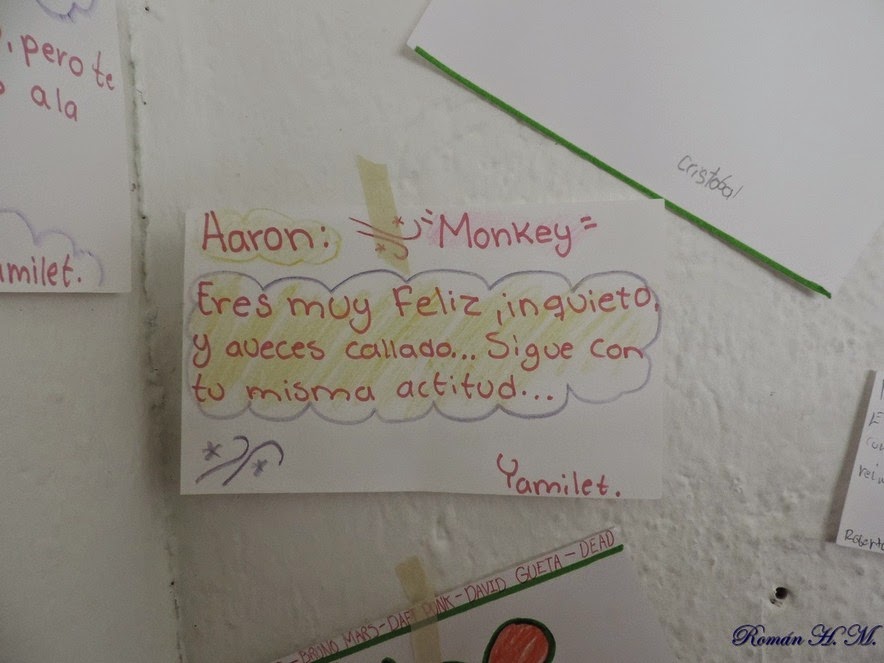 , pero te
ala
amilet.
Cristobal
Aaron: =Monkey=
Eres muy Feliz, inquieto,
y aveces callado... Sigue con
tu misma actitud...
Yamilet.
Roberto
- BRUNO MARS - DAFT PUNK - DAVID GUETA - DEAD
Román H. M.